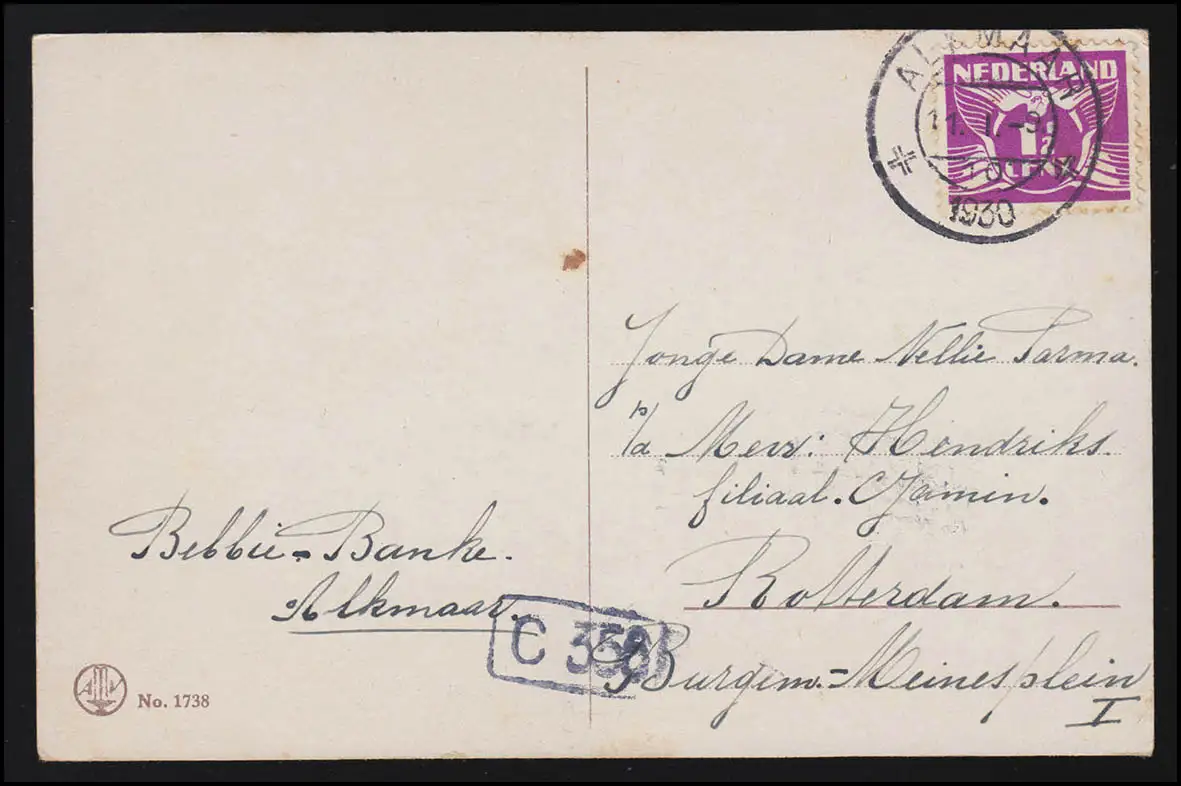 ALKMAAR
11. I. -9
10
1930
NEDERLAND
1½
CENT
Jonge Dame Nellie Parma.
p/a Mevr: Hendriks.
filiaal. C Jamin.
Rotterdam.
Burgem.-Meinesplein
I
Bebbie-Banke.
Alkmaar.
C 358
AMV
No. 1738